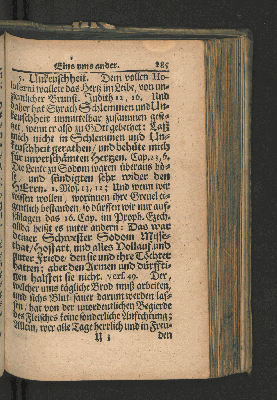 Eins ums ander. 285
5. Unkeuschheit. Dem vollen Ho-
loferni wallete das Hertz im Leibe, von un-
ziemlicher Brunst. Judith 12, 16. Und
daher hat Syrach Schlemmen und Un-
keuschheit unmittelbar zusammen gese-
tzet, wenn er also zu GOtt gebethet: Laß
mich nicht in Schlemmen und Un-
keuschheit gerathen/ und behüte mich
für unverschämten Hertzen. Cap. 23, 6.
Die Leute zu Sodom waren überaus bö-
se/ und sündigten sehr wider den
HErren. 1. Mos. 13, 13; Und wenn wir
wissen wollen, worinnen ihre Greuel ei-
gentlich bestanden, so dürffen wir nur auf-
schlagen das 16. Cap. im Proph. Ezech.
allda heißt es unter andern: Das war
deiner Schwester Sodom Misse-
that/ Hoffart, und alles Vollauf, und
guter Friede, den sie und ihre Töchter
hatten; aber den Armen und dürffti-
gen halffen sie nicht. vers. 49. Der,
welcher ums tägliche Brod muß arbeiten,
und sichs Blut sauer darum werden las-
sen, hat von der unordentlichen Begierde
des Fleisches keine sonderliche Anfechtung;
Allein, wer alle Tage herrlich und in Freu-
den